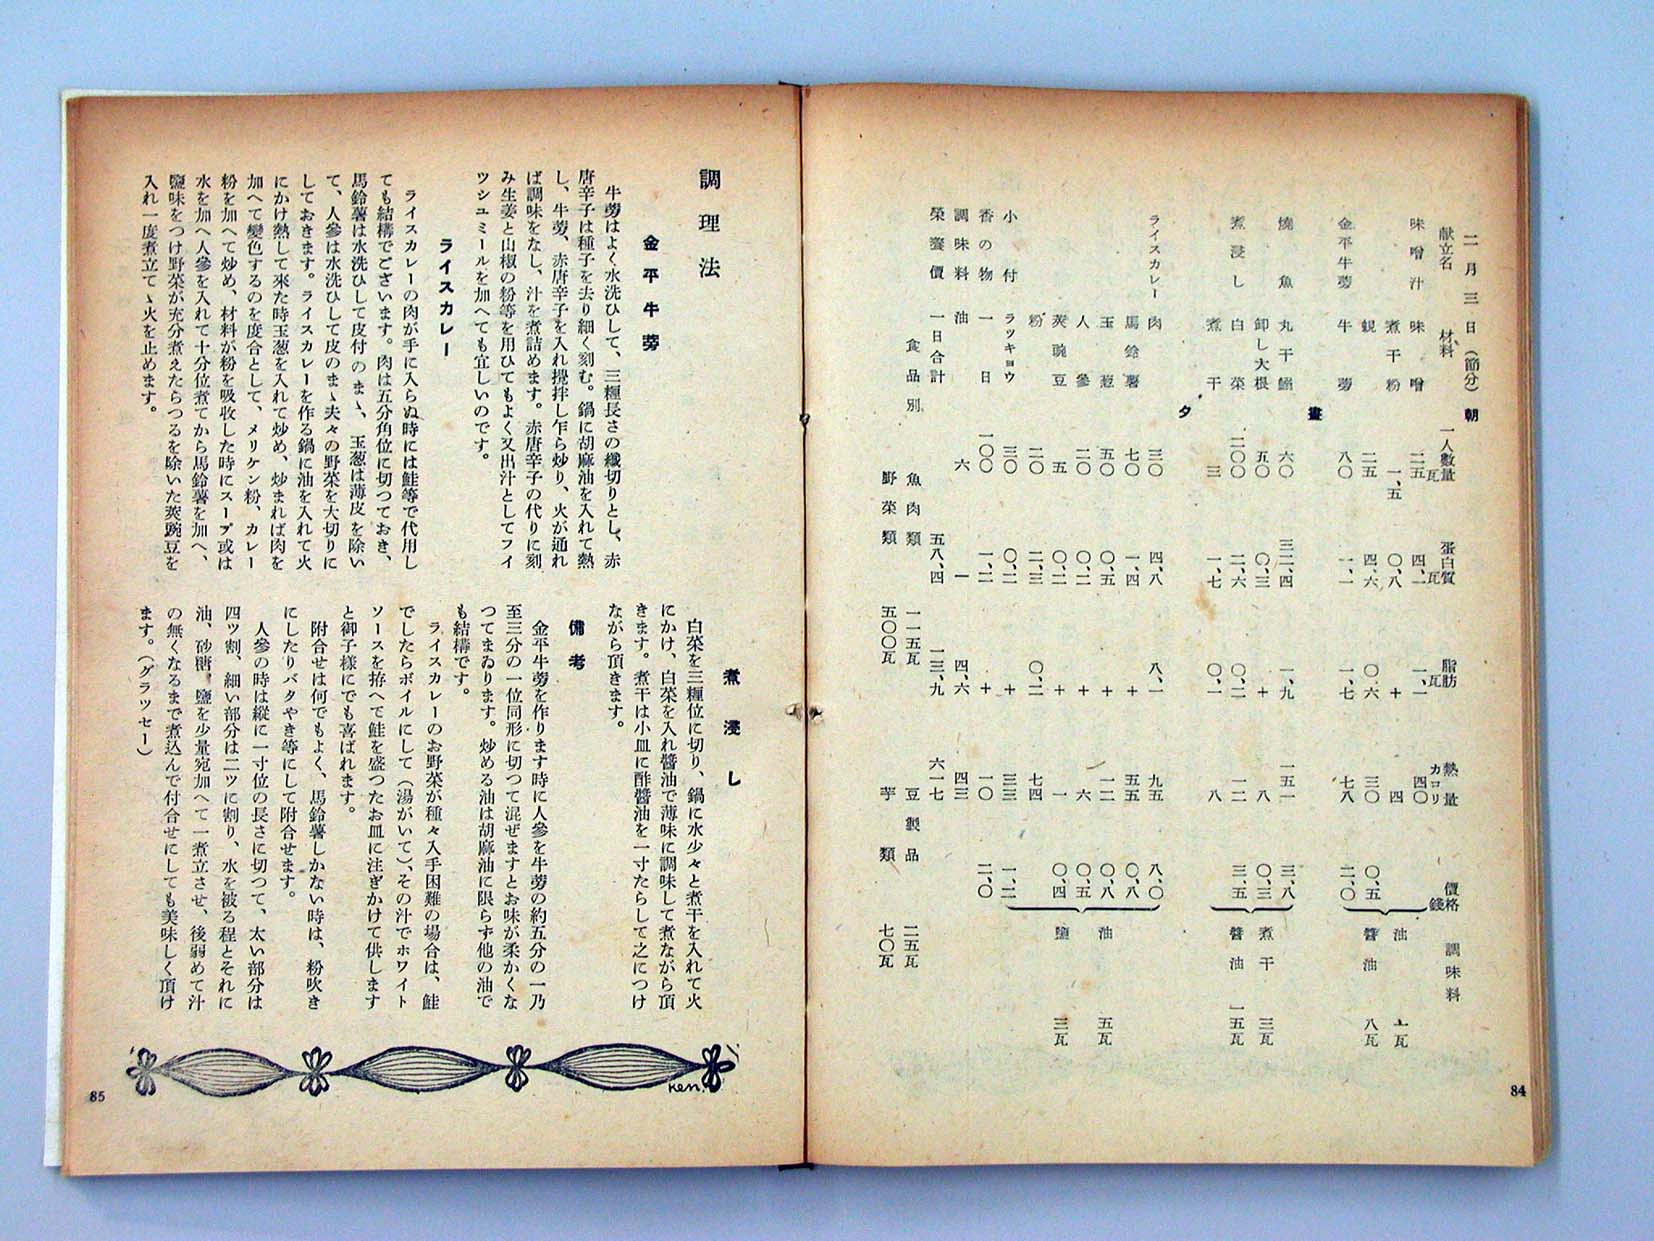 二月三日(節分) 朝
献立名 材料 一人數量瓦 蛋白質瓦 脂肪瓦 熱量カロリー 價格錢 調味料
味噌汁 味噌 二五 四、一 一、一 四〇
煮干粉 一、五 〇、八 + 四
蜆 二五 四、六 〇、六 三〇 〇、五
金平牛蒡 牛蒡 八〇 一、一 一、七 七八 二、〇
油 一瓦
醬油 八瓦
晝
燒魚 丸干鰯 六〇 三二、四 一、九 一五一 三、八
卸し大根 五〇 〇、三 + 八 〇、三
煮浸し 白菜 二〇〇 二、六 〇、二 一二 三、五
煮干 三 一、七 〇、一 八
煮干 三瓦
醬油 一五瓦
夕
ライスカレー 肉 三〇 四、八 八、一 九五 八、〇
馬鈴薯 七〇 一、四 + 五五 〇、八
玉葱 五〇 〇、五 + 一二 〇、八
人參 二〇 〇、二 + 六 〇、五
莢豌豆 五 〇、二 + 一 〇、四
粉 二〇 二、三 〇、二 七四
油 五瓦
鹽 三瓦
小付 ラッキョウ 三〇 〇、二 + 三三 一、二
香の物 一日 一〇〇 一、二 + 一〇 二、〇
調味料 油 六 一 四、六 四三
榮養價 一日合計 五八、四 一三、九 六一七
食品別 魚肉類 一一五瓦 豆製品 二五瓦
野菜類 五〇〇瓦 芋類 七〇瓦
84
調理法
金平牛蒡
牛蒡はよく水洗ひして、三糎長さの纖切りとし、赤
唐辛子は種子を去り細く刻む。鍋に胡麻油を入れて熱
し、牛蒡、赤唐辛子を入れ攪拌し乍ら炒り、火が通れ
ば調味をなし、汁を煮詰めます。赤唐辛子の代りに刻
み生姜と山椒の粉等を用ひてもよく又出汁としてフイ
ツシユミールを加へても宜しいのです。
ライスカレー
ライスカレーの肉が手に入らぬ時には鮭等で代用し
ても結構でございます。肉は五分角位に切つておき、
馬鈴薯は水洗ひして皮付のまゝ、玉葱は薄皮を除い
て、人參は水洗ひして皮のまゝ夫々の野菜を大切りに
しておきます。ライスカレーを作る鍋に油を入れて火
にかけ熱して來た時玉葱を入れて炒め、炒まれば肉を
加へて變色するのを度合として、メリケン粉、カレー
粉を加へて炒め、材料が粉を吸收した時にスープ或は
水を加へ人參を入れて十分位煮てから馬鈴薯を加へ、
鹽味をつけ野菜が充分煮えたらつるを除いた莢豌豆を
入れ一度煮立てゝ火を止めます。
煮浸し
白菜を三糎位に切り、鍋に水少々と煮干を入れて火
にかけ、白菜を入れ醬油で薄味に調味して煮ながら頂
きます。煮干は小皿に酢醬油を一寸たらして之につけ
ながら頂きます。
備考
金平牛蒡を作ります時に人參を牛蒡の約五分の一乃
至三分の一位同形に切つて混ぜますとお味が柔かくな
つてまゐります。炒める油は胡麻油に限らず他の油で
も結構です。
ライスカレーのお野菜が種々入手困難の場合は、鮭
でしたらボイルにして(湯がいて)、その汁でホワイト
ソースを拵へて鮭を盛つたお皿に注ぎかけて供します
と御子樣にでも喜ばれます。
附合せは何でもよく、馬鈴薯しかない時は、粉吹き
にしたりバタやき等にして附合せます。
人參の時は縱に一寸位の長さに切つて、太い部分は
四ツ割、細い部分は二ツに割り、水を被る程とそれに
油、砂糖、鹽を少量宛加へて一煮立させ、後弱めて汁
の無くなるまで煮込んで付合せにしても美味しく頂け
ます。(グラッセー)
Ken.
85